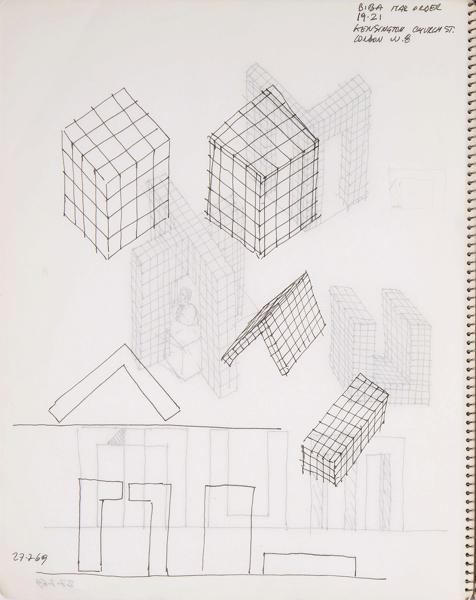 BIBA MAIL ORDER
19.21
KENSINGTON CHURCH ST.
LONDON W.8
27-7-69